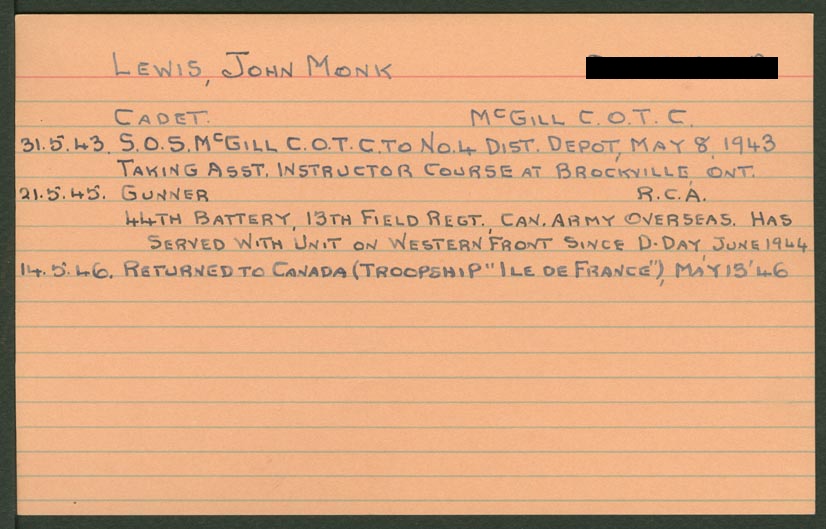 LEWIS, JOHN MONK
CADET. McGILL C.O.T.C.
31.5.43. S.O.S. McGILL C.O.T.C. TO No.4 DIST. DEPOT, MAY 8, 1943
TAKING ASST. INSTRUCTOR COURSE AT BROCKVILLE, ONT.
21.5.45. GUNNER R.C.A.
44TH BATTERY, 13TH FIELD REGT., CAN. ARMY OVERSEAS. HAS
SERVED WITH UNIT ON WESTERN FRONT SINCE D-DAY, JUNE 1944
14.5.46. RETURNED TO CANADA (TROOPSHIP "ILE DE FRANCE"), MAY 13'46